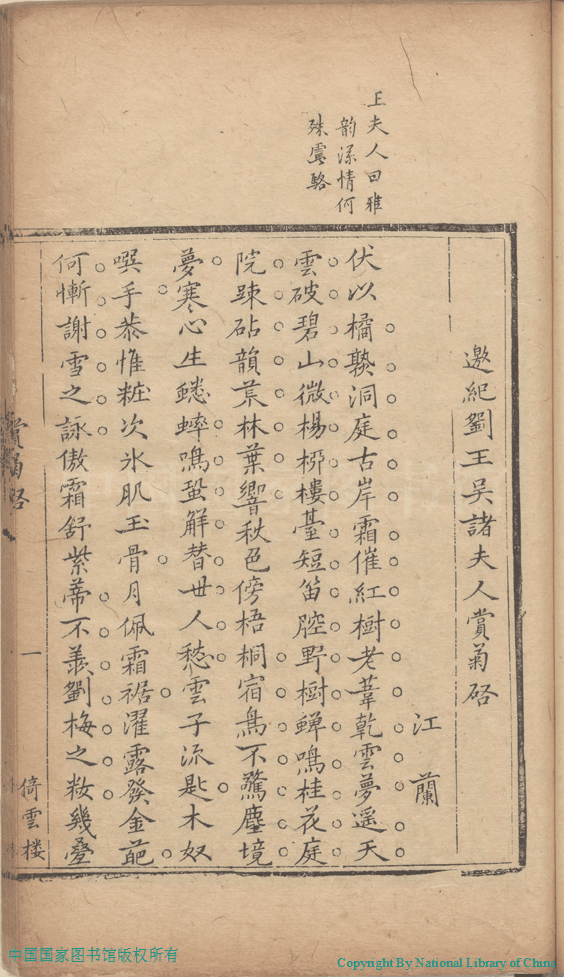 王夫人曰雅
韵深情何
殊賓駱
邀紀劉王吴諸夫人賞菊啓
江蘭
伏以橘熟洞庭古岸霜催紅樹老葦乾雲夢遥天
雲破碧山微楊栁樓臺短笛腔野樹蟬鳴桂花庭
院踈砧韻葉林葉響秋色傍梧桐宿鳥不驚塵境
夢寒心生蟋蟀鳴蛩解替世人愁雲子流匙木奴
噀手恭惟粧次氷肌玉骨月佩霜裾濯露發金葩
何慚謝雪之詠傲霜舒紫蔕不羨劉梅之妝幾疊
賞菊啓
一
倚雲楼
中国国家图书馆版权所有
Copyright By National Library of China